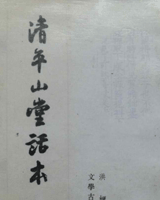 清平山堂話本
洪楩
文學古